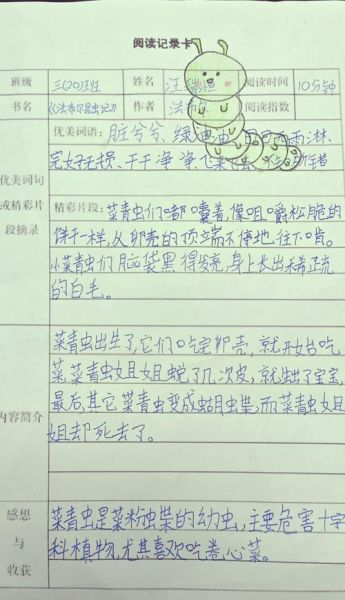 阅读记录卡
班级 三(20)班 姓名 汪 阅读时间 10分钟
书名 《法布尔昆虫记》 作者 法布 阅读指数
优美词句或精彩片段摘录
优美词语:脏兮兮、绿油油、 淋、
完好无损、干干净净、飞来飞
精彩片段:菜青虫们嘟囔着,像咀嚼松脆的
饼干一样,从卵壳的顶端不停地往下啃。
小菜青虫们脑袋黑得发亮,身上长出稀疏
的白毛。
内容简介
菜青虫出生了,它们吃完卵壳,就开始吃
菜,菜青虫姐姐蜕了几次皮,就生了宝宝,
最后,其它菜青虫变成蝴蝶,而菜青虫姐
姐却死去了。
感想与收获
菜青虫是菜粉蝶的幼虫,主要危害十字
科植物,尤其喜欢吃卷心菜。